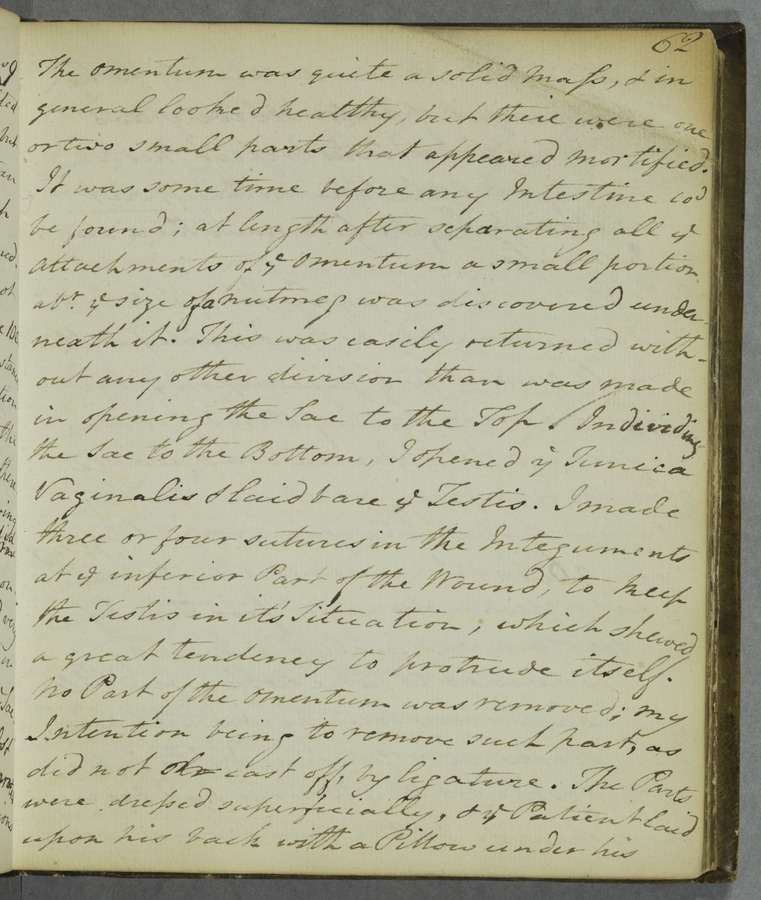 62
The omentum was quite a solid mass, & in
general looked healthy, but there were one
or two small parts that appeared mortified.
It was some time before any Intestine cod
be found; at length after separating all ye
attachments of ye omentum a small portion
abt. ye size of a nutmeg was discovered under-
neath it. This was easily returned with-
out any other division than was made
in opening the Sac to the Top. In dividing
the Sac to the Bottom, I opened ye Tunica
Vaginalis & laid bare ye Testis. I made
three or four sutures in the Integuments
at ye inferior Part of the Wound, to keep
the Testis in it's Situation, which shewed
a great tendency to protrude itself.
No Part of the omentum was removed; my
Intention being to remove such part, as
did not cast off, by ligature. The Parts
were dressed superficially, & ye Patient laid
upon his back with a Pillow under his